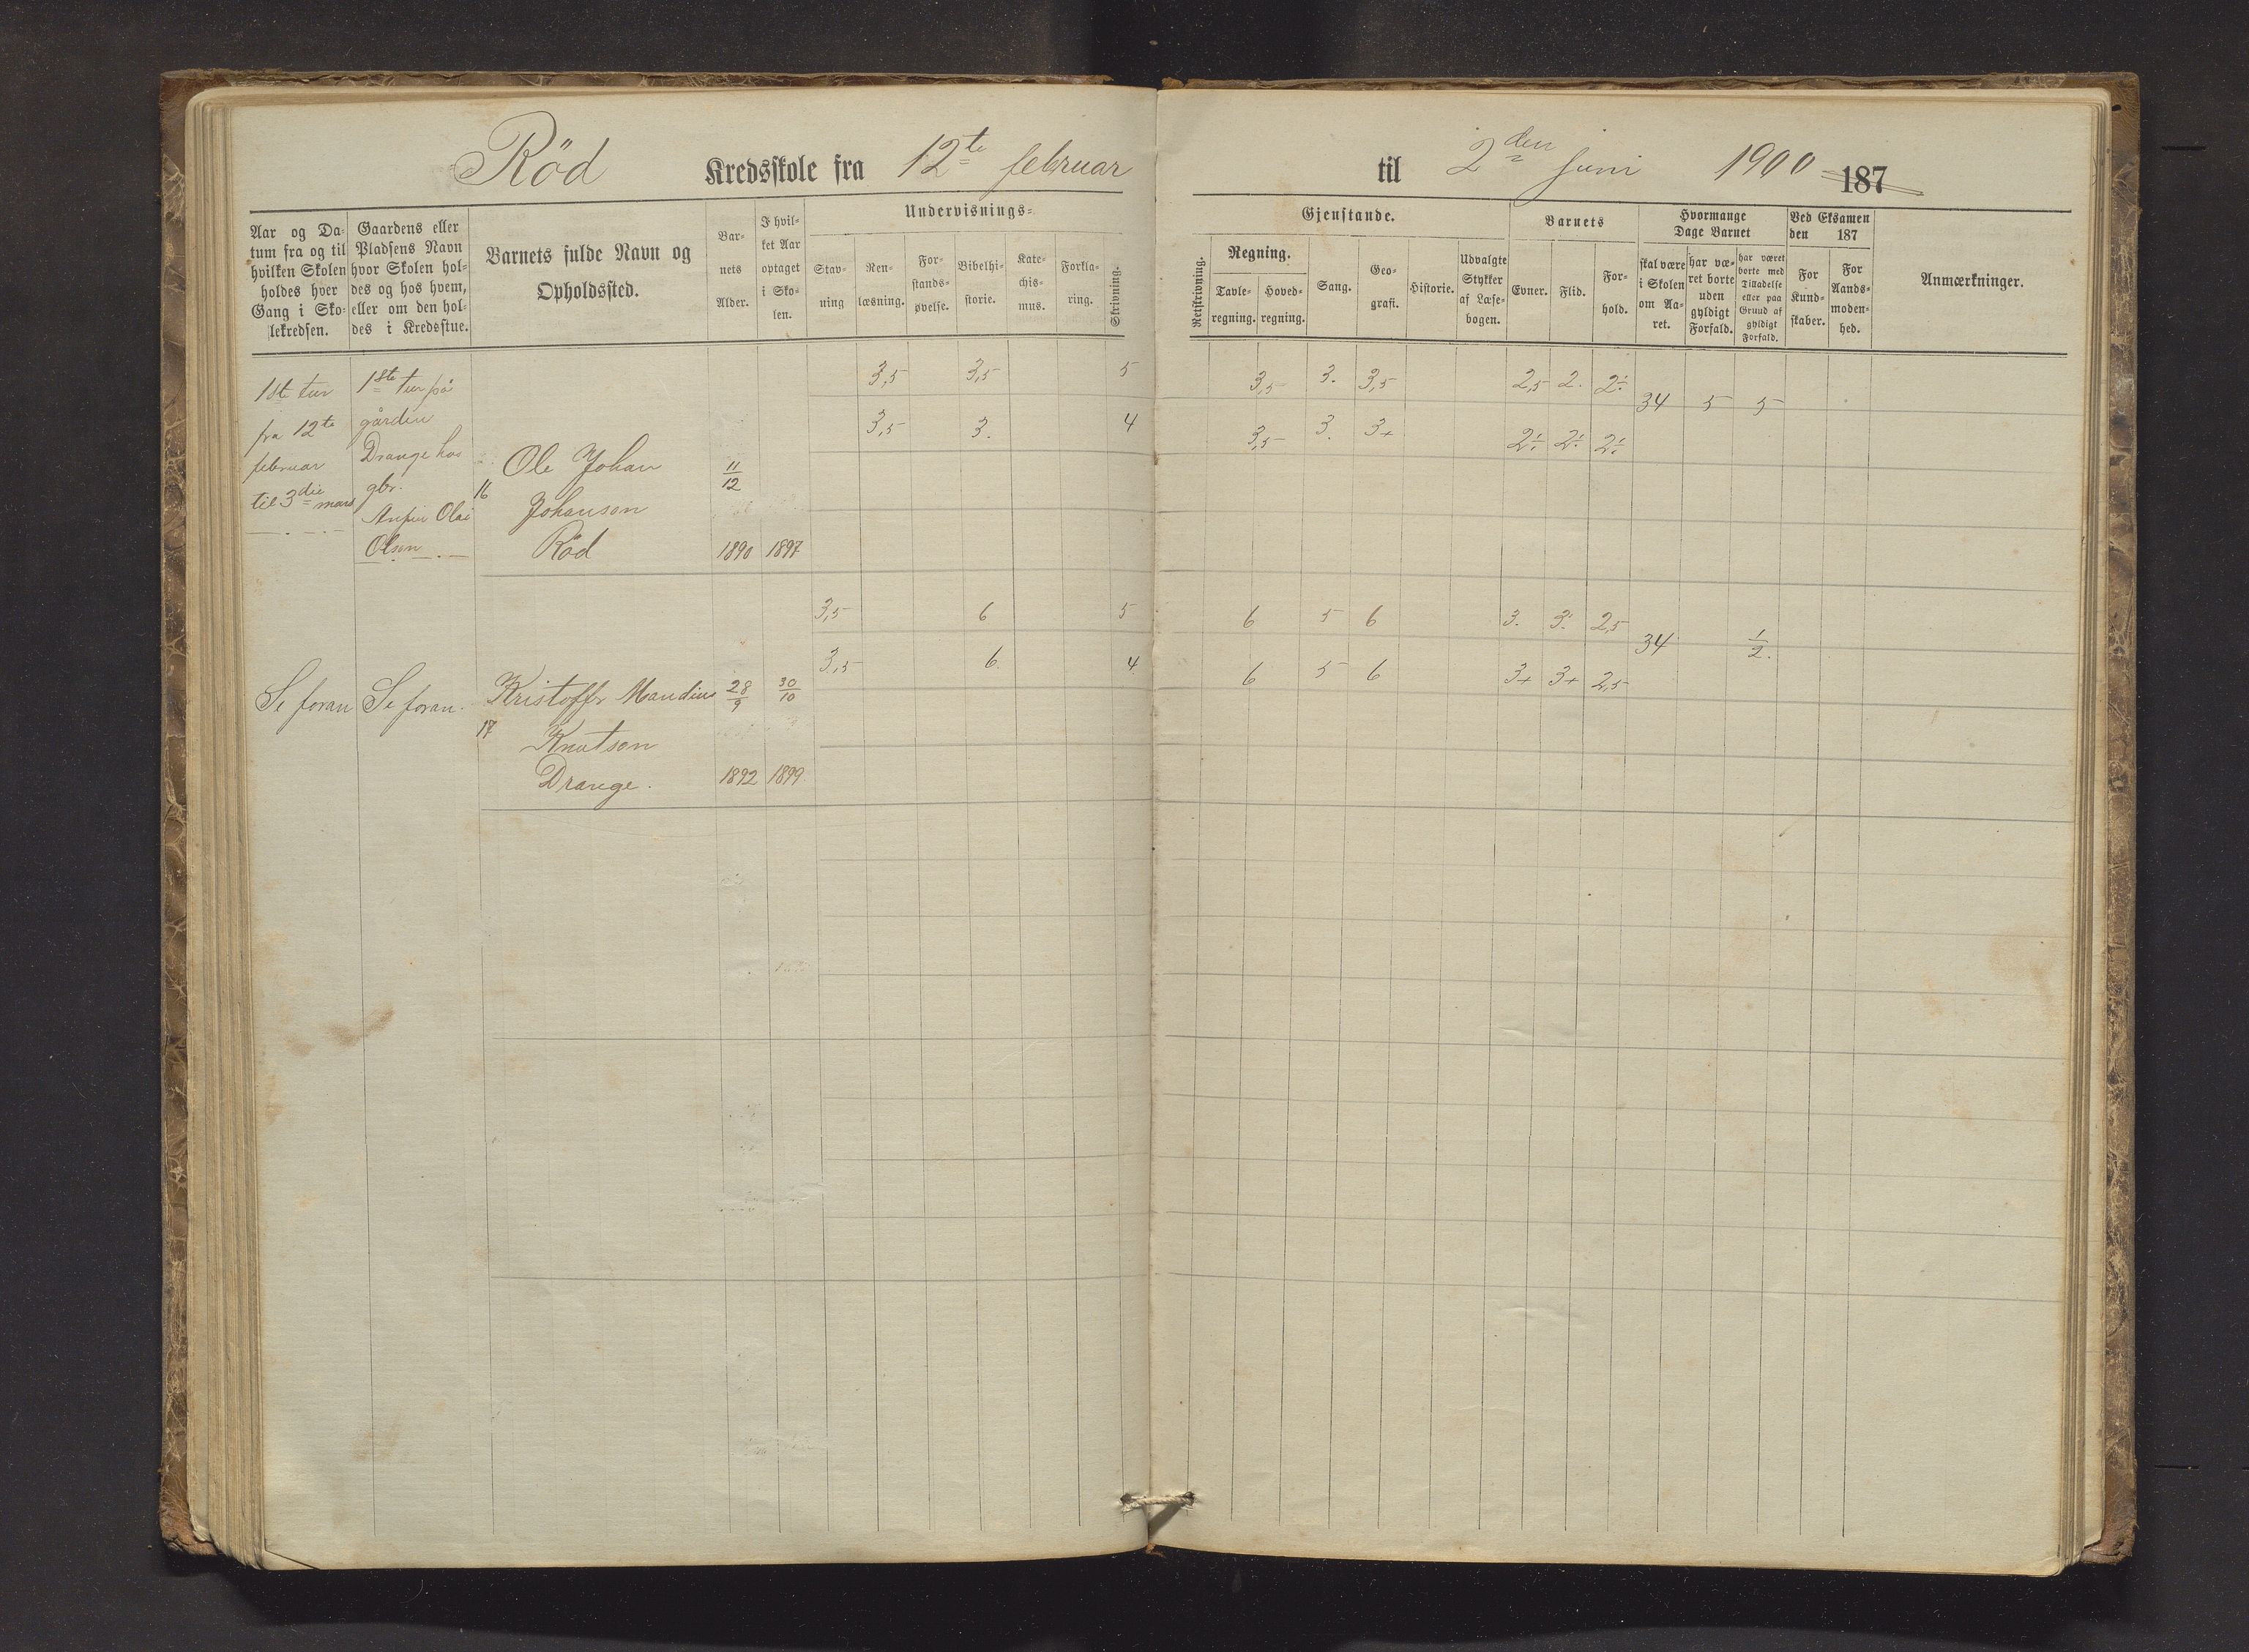 Röd Kredsskole fra 12te februar til 2den juni 1900 187
Aar og Da-
tum fra og til
hvilken Skolen
holdes hver
Gang i Sko-
lekredsen.
Gaardens eller
Pladsens Navn
hvor Skolen hol-
des og hos hvem,
eller om den hol-
des i Kredsstue.
Barnets fulde Navn og
Opholdssted.
Bar-
nets
Alder.
I hvil-
ket Aar
optaget
i Sko-
len.
Undervisnings-
Stav-
ning
Ren-
læsning.
For-
stands-
øvelse.
Bibelhi-
storie.
Kate-
chis-
mus.
Forkla-
ring.
Skrivning.
Gjenstande.
Retskrivning.
Regning.
Tavle-
regning.
Hoved-
regning.
Sang.
Geo-
grafi.
Historie.
Udvalgte
Stykker
af Læse-
bogen.
Barnets
Evner.
Flid.
For-
hold.
Hvormange
Dage Barnet
skal være
i Skolen
om Aa-
ret.
har væ-
ret borte
uden
gyldigt
Forfald.
har været
borte med
Tilladelse
eller paa
Grund af
gyldigt
Forfald.
Ved Eksamen
den 187
For
Kund-
skaber.
For
Aands-
moden-
hed.
Anmærkninger.
1ste tur
fra 12te
februar
til 3die mars
1ste tur på
gården
Drange hos
gbr.
Olai
Olsen
16
Ole Johan
Johansen
Röd
11/12
1890 1897
3,5 3,5 5 3,5 3. 3,5 2,5 2. 2÷
34 5 5
3,5 3. 4 3,5 3. 3+ 2÷ 2÷ 2÷
Se foran Se foran.
17
Kristoffer Mandius
Knutsen
Drange.
28/9 30/10
1892 1899
3,5 6 5 6 5 6 3. 3÷ 2,5
34 1/2.
3,5 6. 4 6 5 6 3+ 3+ 2,5